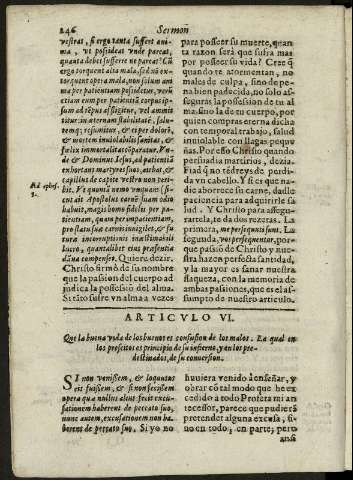 246 Sermon
vestrat, si ergo tanta suffert ani-
ma, ut possideat unde pereat,
quanta debet sufferre ne pereat? Cũ
ergo torquent alta mala, sed nõ ex-
torquent opera mala, non solum ani
ma per patientiam possidetur, verũ
etiam cum per patientiã corpus ip-
sum ad tẽpus affligitur, vel ammit-
titur: in aternam stabilitatẽ, salu-
temq; resumitur, & ei per dolorẽ,
& mortem inviolabilis sanitas, &
fœlix immortalitas cõparatur. Vn-
de & Dominus Iesus, ad patientiã
exhortans martyres suos, aitbat, &
capillus de capite vestro non veri-
Ad ephes.
bit. Ve quomã nemo vnquam (si-
5.
cut ait Apostolus carnẽ suam odio
habuit, magis homo fidelis per pa-
tientiam, quam per impatientiam,
pro statu sua carnis invigilet, & fu
tura incorruptionis inastimabili
lucro, quantalibet eius prasentia
dãna compenset. Quiere dezir.
Christo firmò de su nombre
que la passion del cuerpo ad
indica la possessiõ del alma.
Si tãto sufre vn alma a vezes
para posseer su muerte, quan
ta razon serà que sufra mas
por posseer su vida? Cree q̃
quando te atormentan, no
males de culpa, sino de pe-
na bien padecida, no solo as-
seguras la possession de tu al
ma sino la de tu cuerpo, por
quien compras eterna dicha
con temporal trabajo, salud
inviolable con llagas peque
ñas. Por esso Christo quando
persuadia martirios, dezia.
Fiad q̃ no tedreys de perdi-
da vn cabello. Y si es que na-
die aborrece su carne, dad le
paciencia para adquirirle sa
lud. Y Christo para assegu-
rartela, te da dos rezeras. La
primera, me persequuti sunt. La
segunda, vos persequentur, por-
que passiõ de Christo y nue-
stra hazen perfecta santidad,
y la mayor es sanar nuestra
flaqueza, con la memoria de
ambas passiones, que es el as-
sumpto de nuestro articulo.
ARTICVLO VI.
Que la buena vida de los buenos es confusion de los malos. La qual en
los prescitos es principio de su infierno, y en los pre-
destinados, de su conversion.
SI non venissem, & loquutus
eis fuissem, & si non fecissem
opera qua nullus alius fecit excu-
sationem haberent de peccato suo,
nunc autem, excusationem non ha-
berent de peccato suo. Si yo no
huuiera venido à enseñar, y
obrar cõ tal modo que he ex
cedido a todo Profeta mi an
tecessor, parece que pudierã
pretender alguna escusa, si-
no en todo, en parte; pero